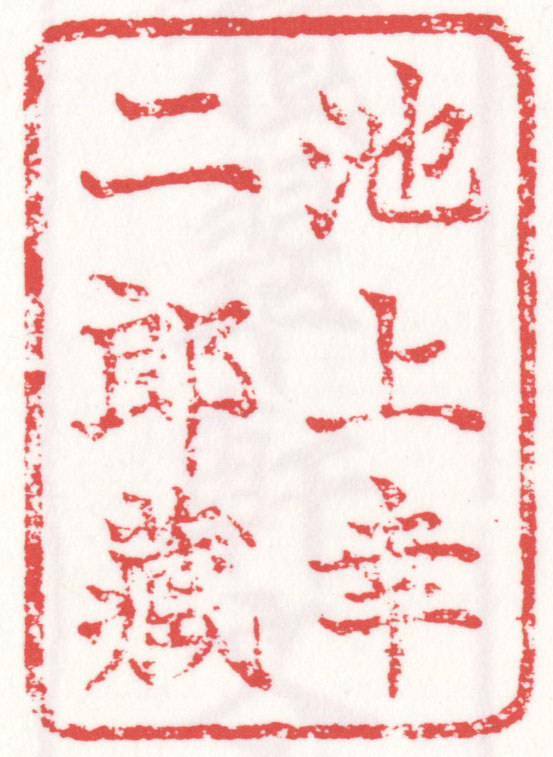 池上幸
二郎藏